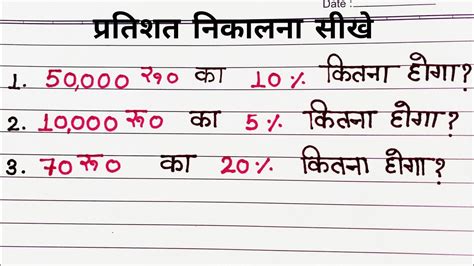 Date :
प्रतिशत निकालना सीखे
1. 50,000 रु० का 10% कितना होगा?
2. 10,000 रू० का 5% कितना होगा?
3. 70 रू० का 20% कितना होगा?